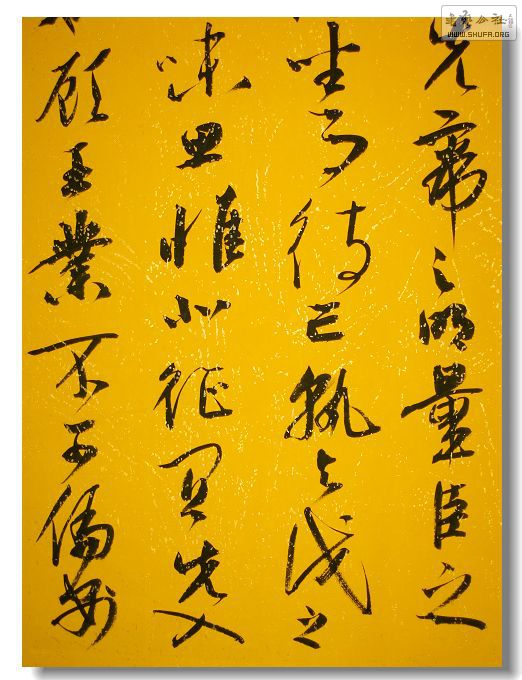 先帝之明量臣之
坐而待亡孰与伐之
味思惟北征宜先入
顧王業不可偏安
WWW.SHUFA.ORG